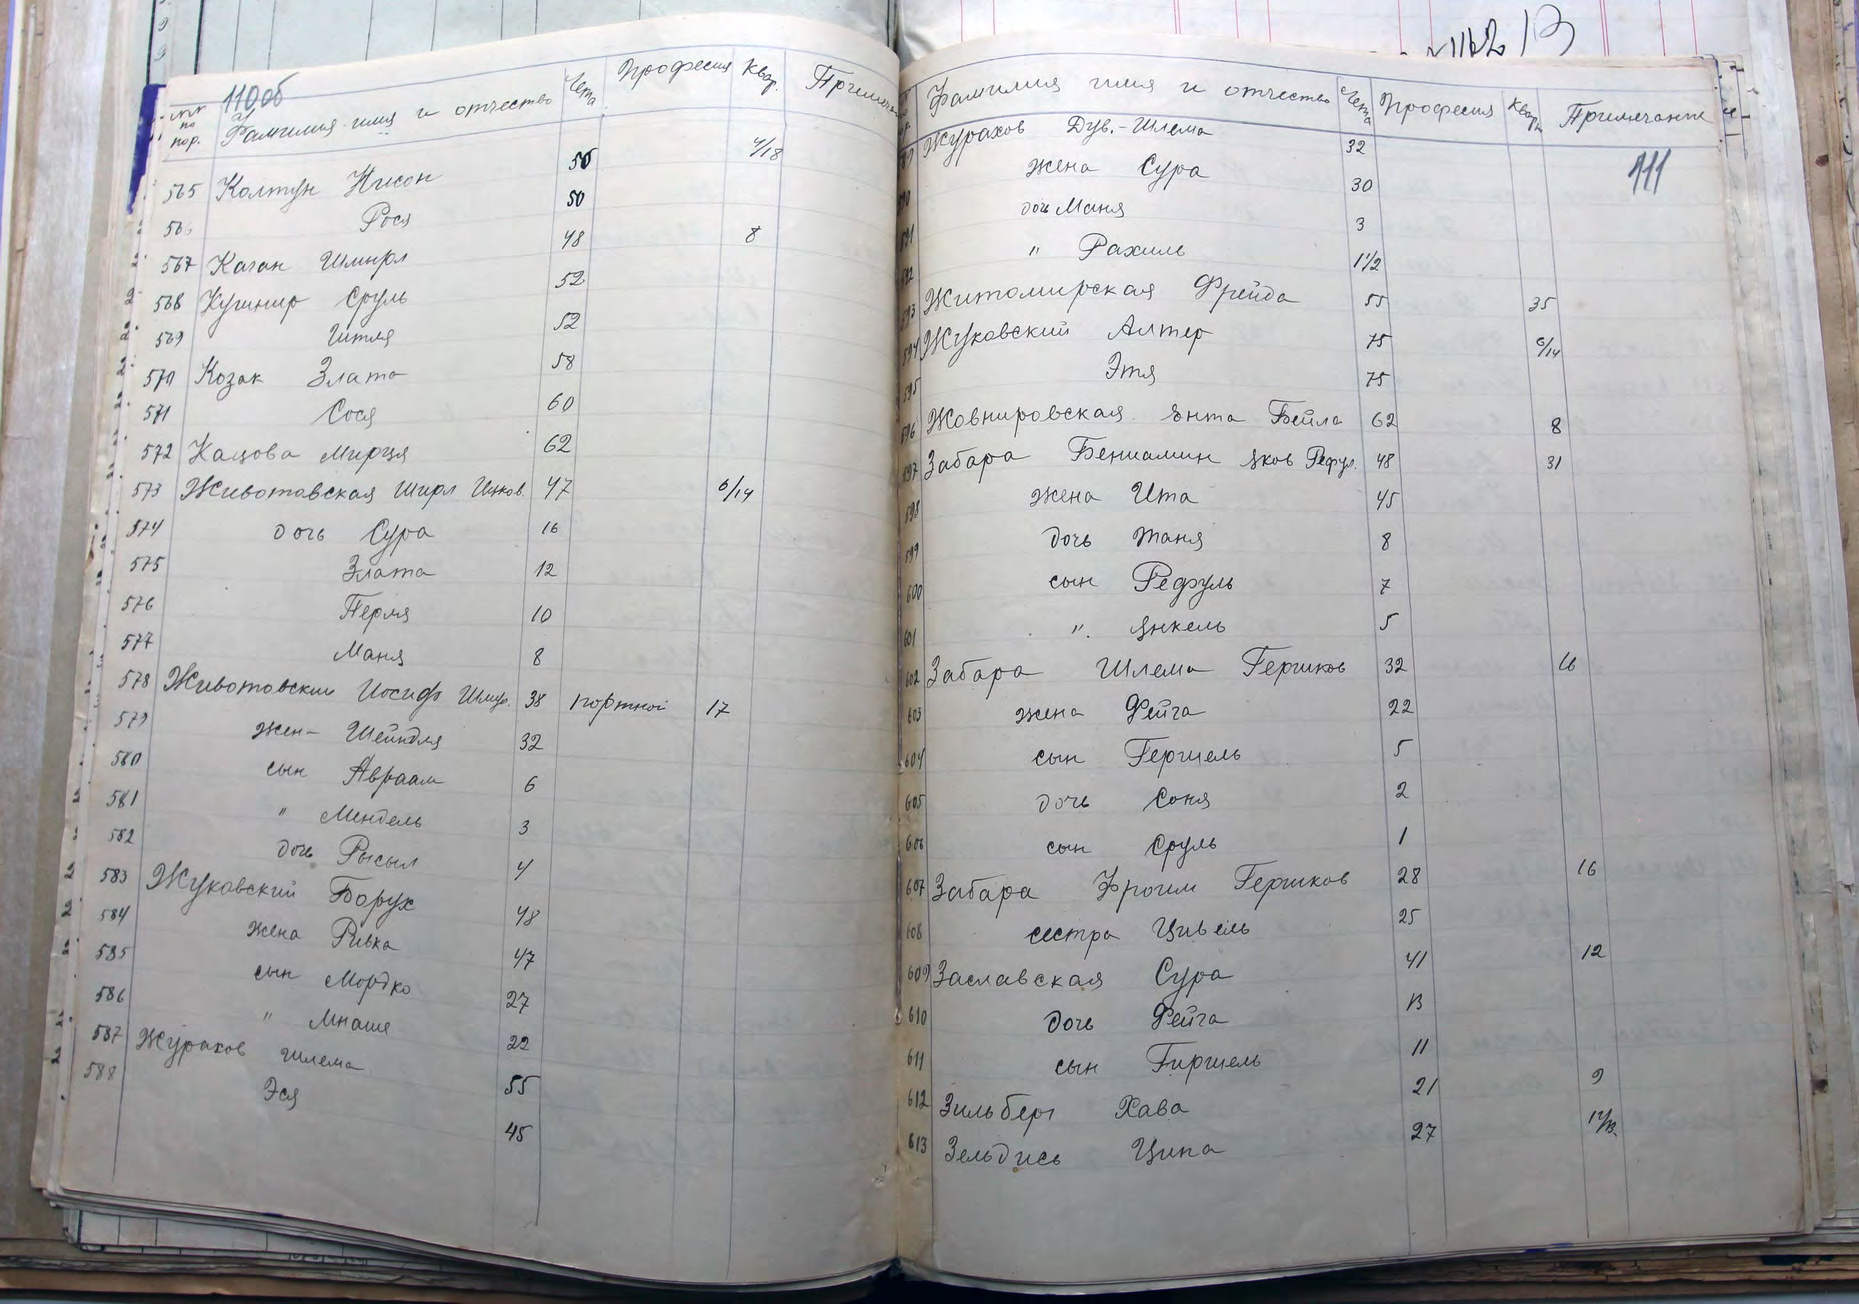 110 об
№№ по пор. Фамилия имя и отчество Лета Професия Квар. Примечан
565 Колтун Нисон 56 4/18
566 Рося 50
567 Каган Шмирл 48 8
568 Кушнир Сруль 52
569 Шитля 52
570 Козак Злата 58
571 Сося 60
572 Кацова Мирця 62
573 Животовская Ширл Ицков. 47 6/14
574 дочь Сура 16
575 Злата 12
576 Перля 10
577 Маня 8
578 Животовский Иосиф Шмр. 38 портной 17
579 жен- Шейндля 32
580 сын Авраам 6
581 " Мендель 3
582 дочь Рысыл 4
583 Жуковский Борух 48
584 жена Ривка 47
585 сын Мордко 27
586 " Мнаше 22
587 Журахов Шлема 55
588 Эся 45
1162/13
111
Фамилия имя и отчество Лета Професия Квар Примечание
Журахов Дув.-Шлема 32
жена Сура 30
дочь Маня 3
" Рахиль 1 1/2
Житомирская Фрейда 55 35
594 Жуковский Алтер 75 6/14
595 Этя 75
596 Жовнировская Ента Бейла 62 8
597 Забара Бениамин Яков Рефул. 48 31
598 жена Ита 45
599 дочь Маня 8
600 сын Рефуль 7
601 " Янкель 5
602 Забара Шлема Гершков 32 16
603 жена Фейга 22
604 сын Гершель 5
605 дочь Соня 2
606 сын Сруль 1
607 Забара Фроим Гершков 28 16
608 сестра Цивель 25
609 Заславская Сура 41 12
610 дочь Фейга 13
611 сын Гиршель 11
612 Зильберг Хава 21 9
613 Зельдись Ципа 27 12/13